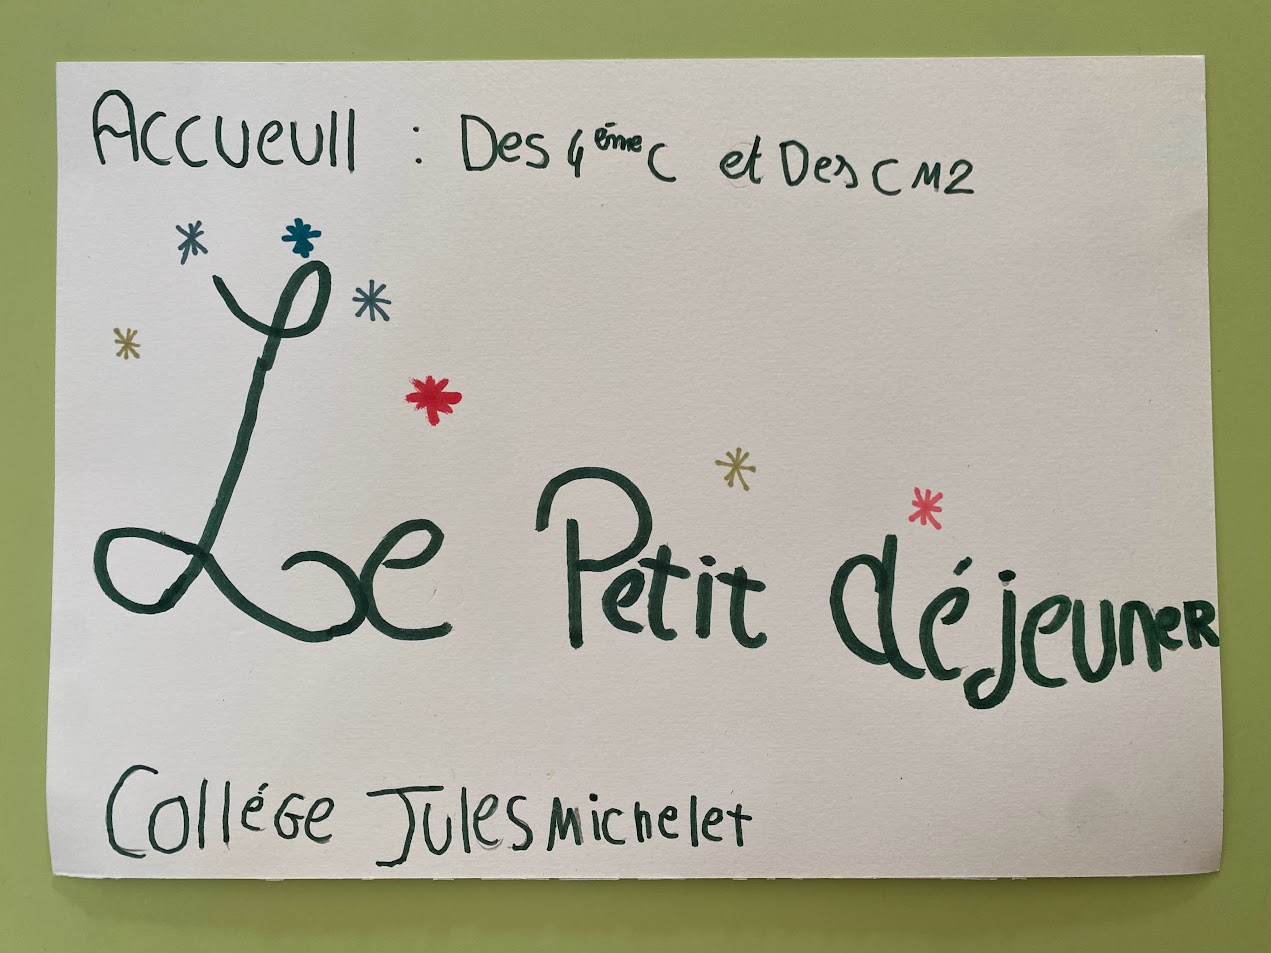 Accueull : Des 4ème C et Des CM2
Le Petit déjeuner
Collége Jules Michelet